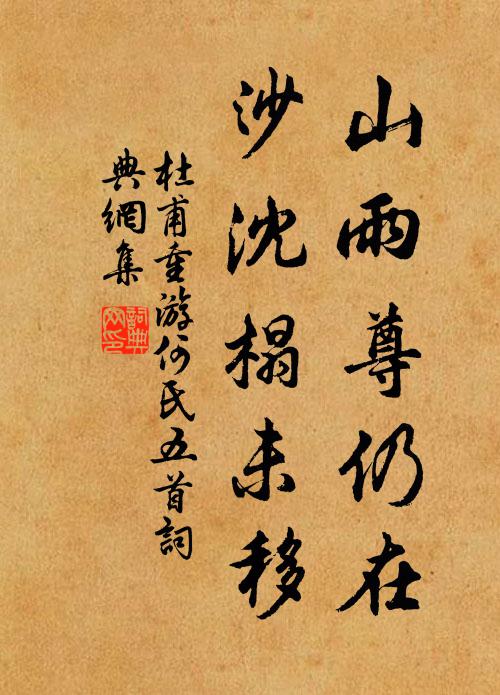 山雨尊仍在
沙沈榻未移
杜甫重游何氏五首詞
典網集
詞典
网印